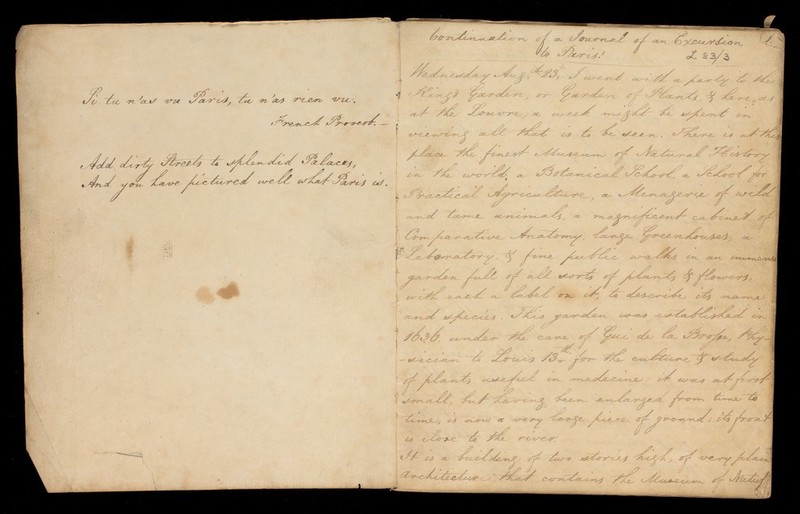 Si tu n'as vu Paris, tu n'as rien vu.
French Proverb. —
Add dirty Streets to splendid Palaces,
And you have pictured well what Paris is.
1.
Continuation of a Journal of an Excursion
to Paris.
Wednesday Aug. 13. I went with a party to the
King's Garden, or Garden of Plants, & here, as
at the Louvre, a week might be spent in
viewing all that is to be seen. There is at this
place the finest Museum of Natural History
in the world, a Botanical School, a School for
Practical Agriculture, a Menagerie of wild
and tame animals, a magnificent cabinet of
Comparative Anatomy, large Greenhouses, a
Laboratory, & fine public walks in an immense
garden full of all sorts of plants & flowers,
with each a label on it, to describe its name
and species. This garden was established in
1636, under the care of Gui de la Brosse, Phy-
-sician to Louis 13th for the culture & study
of plants useful in medecine; it was at first
small, but having been enlarged from time to
time, is now a very large piece of ground; its front
is close to the river.
It is a building of two stories high, of very plain
architecture that contains the Museum of